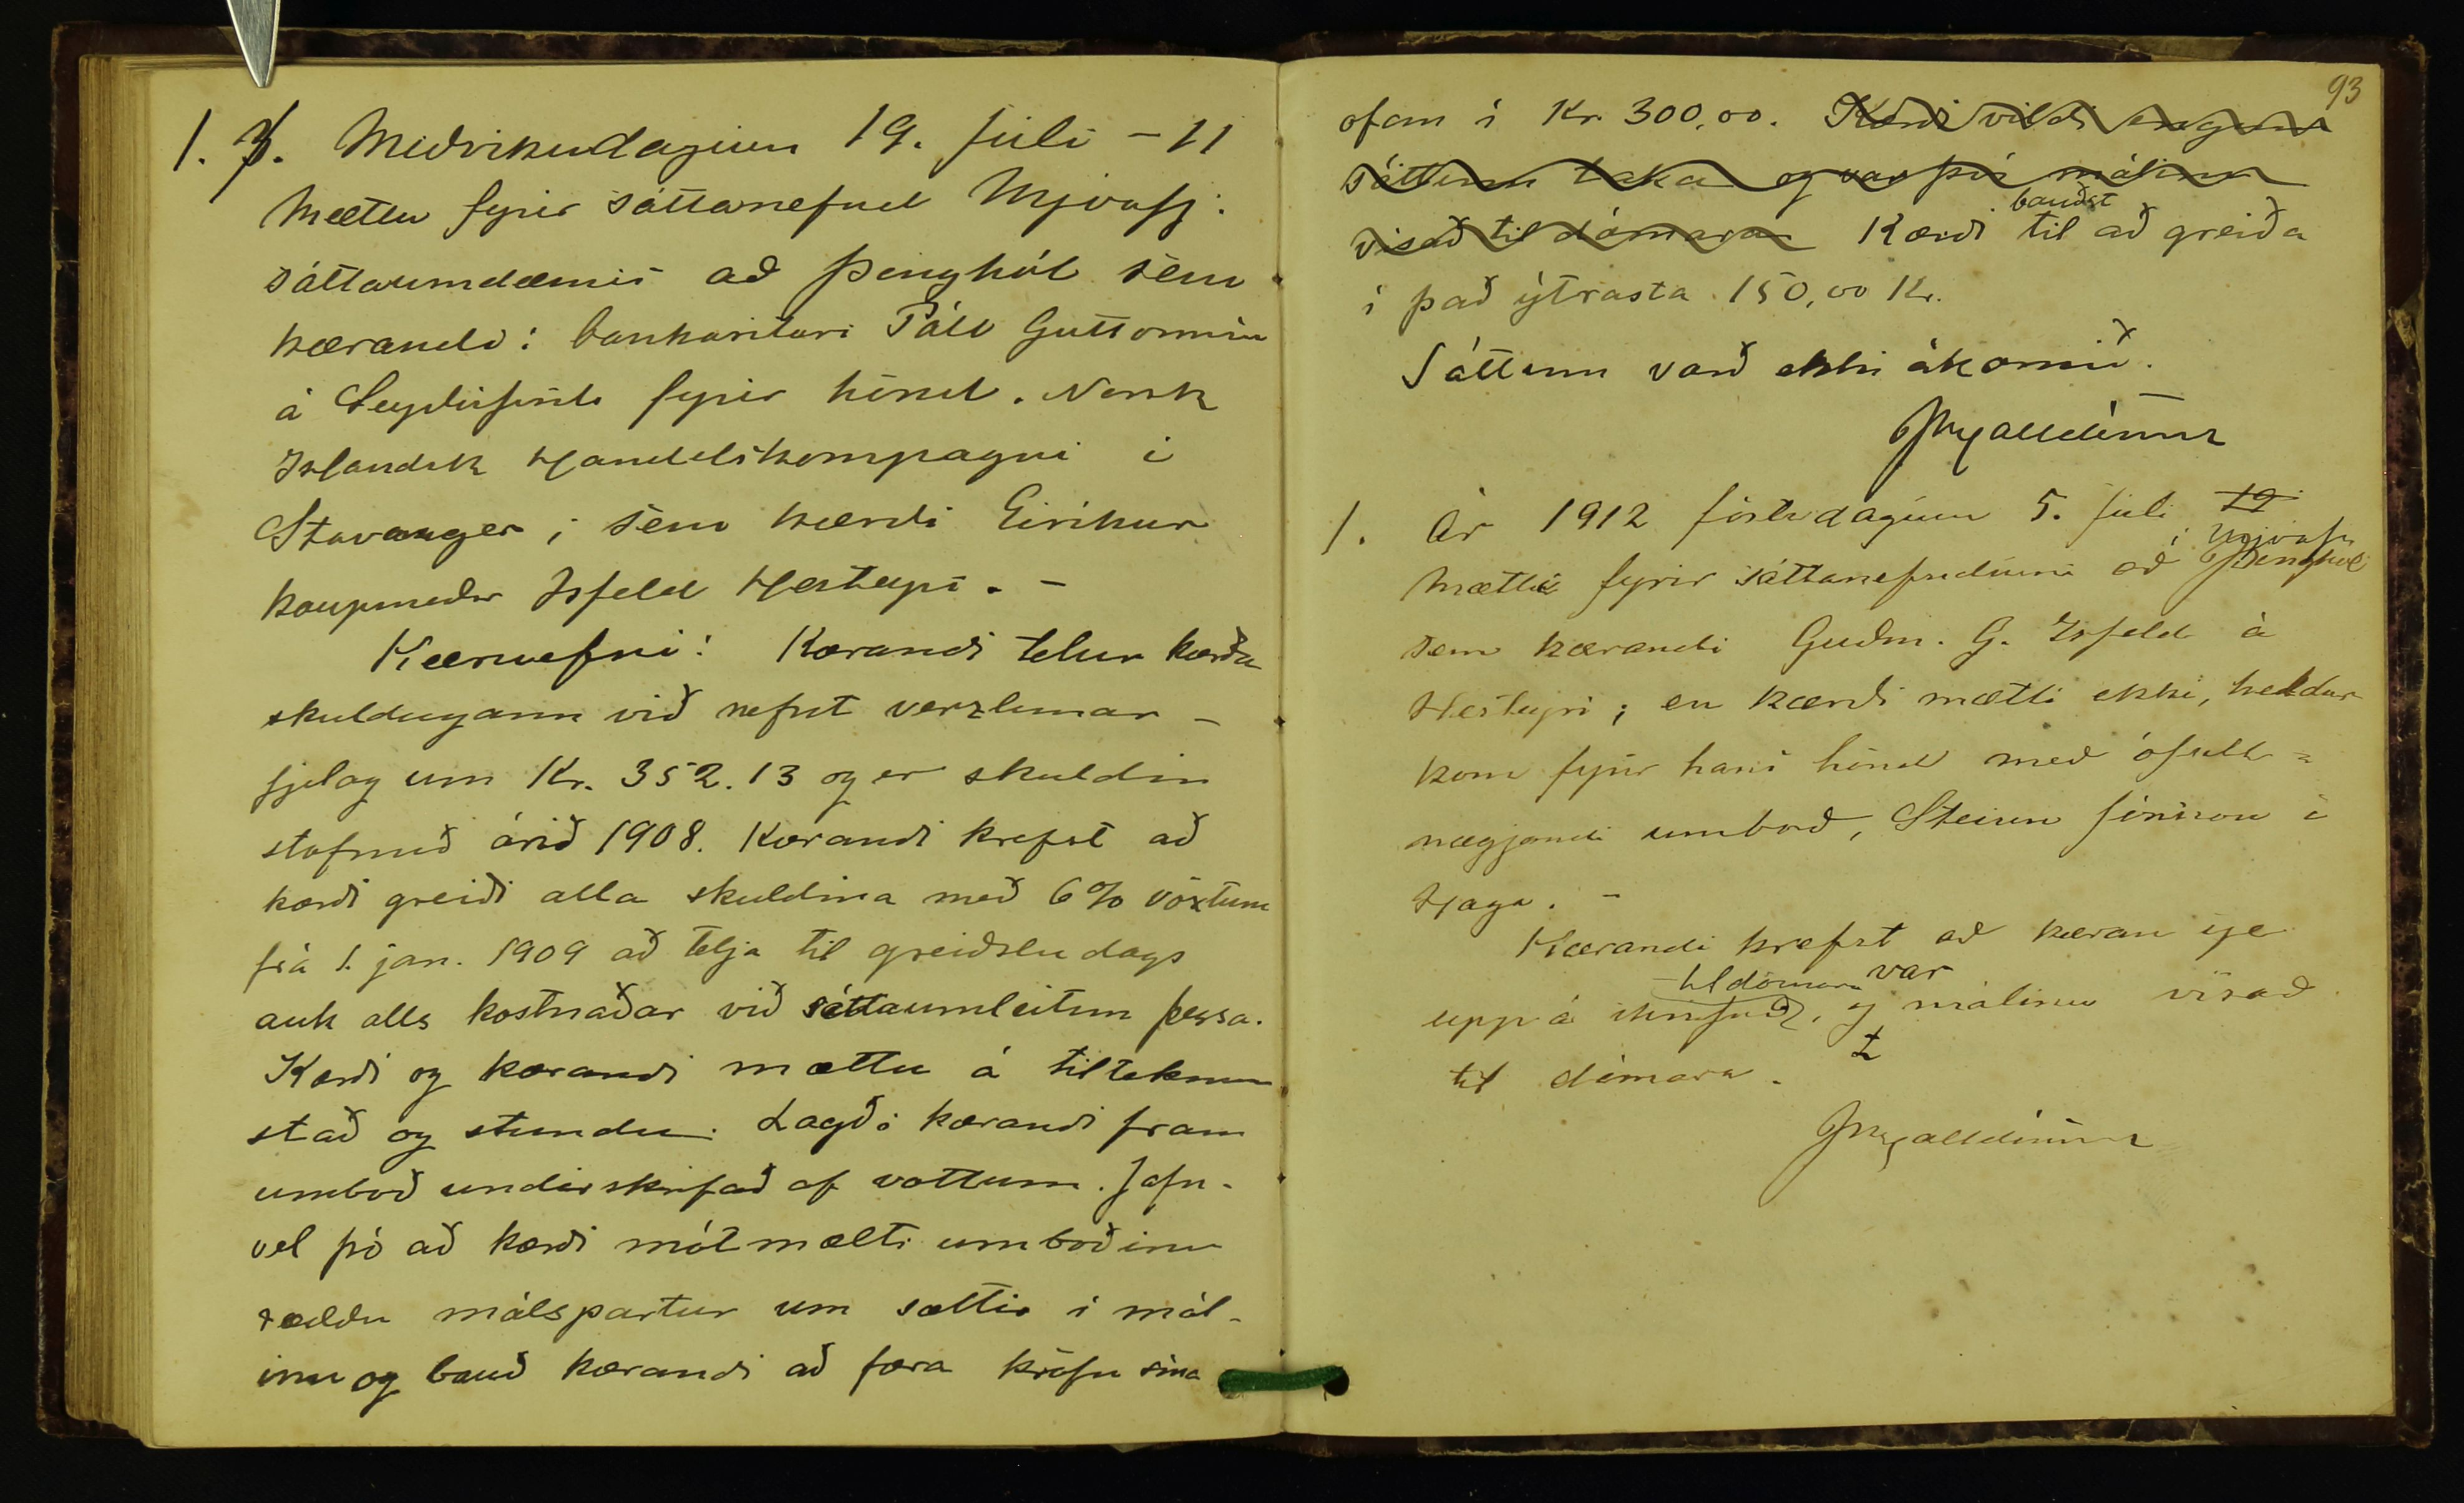 1. Miðvikudaginn 19. júlí - 11
Mættu fyrir sáttanefnd Mjóafj:
sáttaumdæmis að Þinghól sem
kærandi: bankaritari Páll Guttormsn
á Seyðisfirði fyrir hönd. Norsk
Islandsk Handelskompagni i
Stavanger; sem kærði Eiríkur
kaupmaður Isfeld Hesteyri. -
Kæruefni: Kærandi telur kærða
skuldugann við nefnt verzlunar-
fjelag um Kr. 352.13 og er skuldin
stofnuð árið 1908. Kærandi krefst að
kærði greiði alla skuldina með 6% vöxtum
frá 1. jan. 1909 að telja til greiðsludags
auk alls kostnaðar við sáttaumleitun þessa.
Kærði og kærandi mættu á tilteknum
stað og stundu. Lagði kærandi fram
umboð undirskrifað af vottum. Jafn-
vel þó að kærði mótmælti umboðinu
ræddu málspartur um sættir í mál-
inu og bauð kærandi að færa kröfu sína
93
ofan í Kr. 300,00. Kærði vildi engum
sáttum taka og var því málinu
vísað til dómara Kærði bauðst til að greiða
í það ýtrasta 150,00 Kr.
Sáttum varð ekki ákomið.
1. Ár 1912 föstudaginn 5. júlí 12
Mætti fyrir sáttanefndinni að Þinghól í Mjóafj.
sem kærandi Guðm. G. Isfeld á
Hesteyri; en kærði mætti ekki, heldur
kom fyrir hans hönd með ófull=
nægjandi umboð, Steinn Jónsson í
Haga. -
Kærandi krefst að kæran sje
uppáskrifuð, til dómara og var málinu vísað
til dómara.